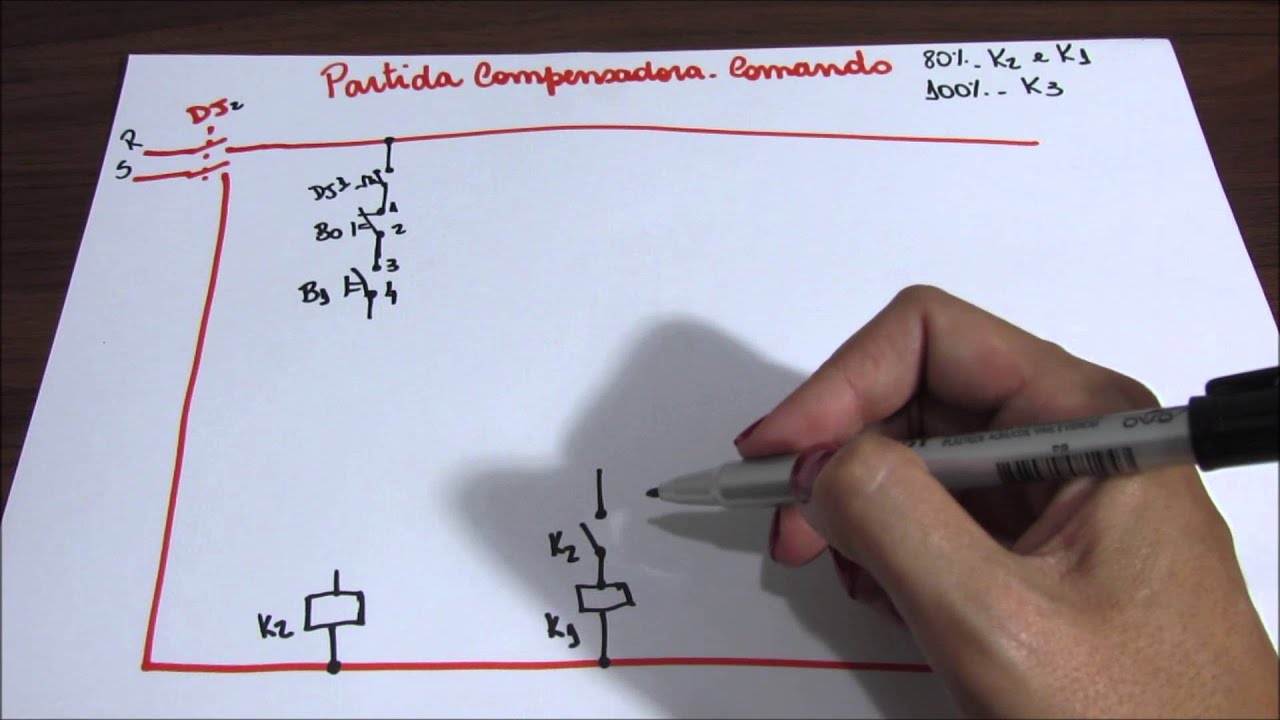 Partida Compensadora. Comando
80%. K2 e K1
100%. - K3
DJ2
R
S
DJ1
B0
1
2
3
B1
4
K2
K1
K2